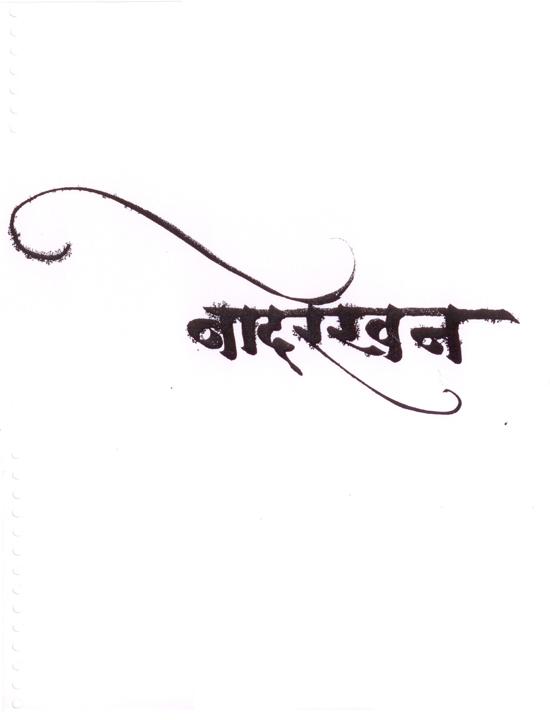 नादरेखन